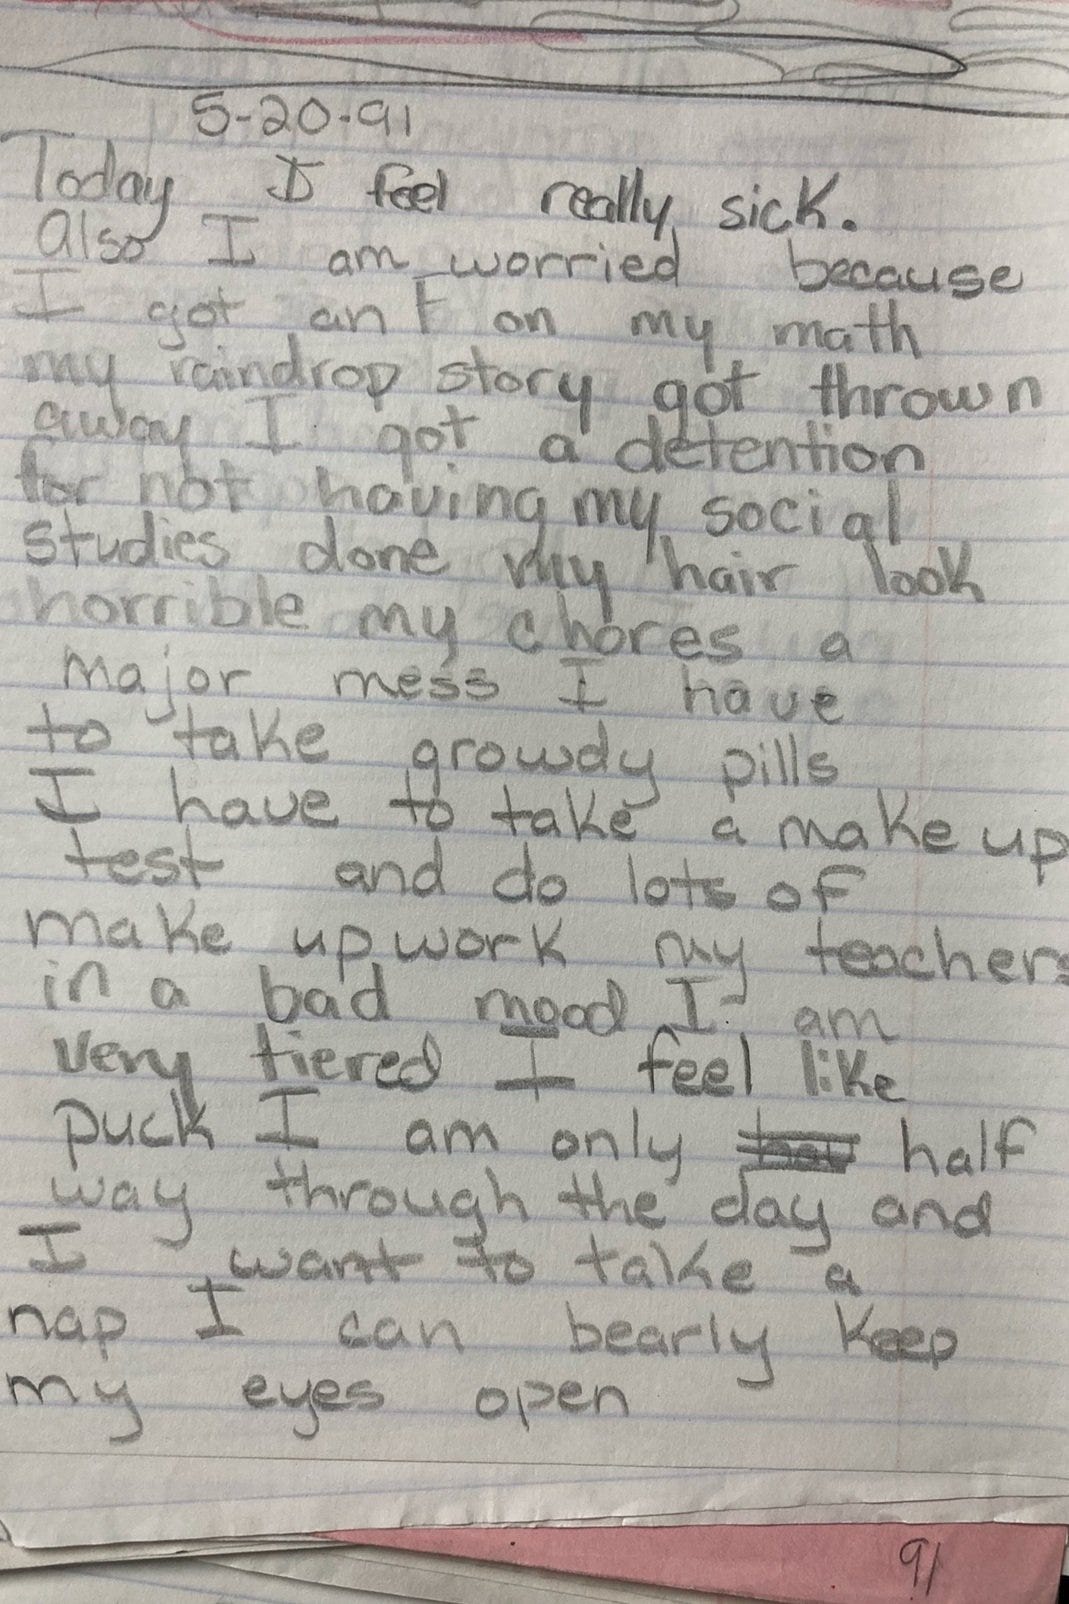 5-20-91
Today I feel really sick.
Also I am worried because
I got an F on my math
my raindrop story got thrown
away I got a detention
for not having my social
studies done my hair look
horrible my chores a
major mess I have
to take growdy pills
I have to take a make up
test and do lots of
make up work my teachers
in a bad mood I am
very tiered I feel like
puck I am only half
way through the day and
I want to take a
nap I can bearly keep
my eyes open
91